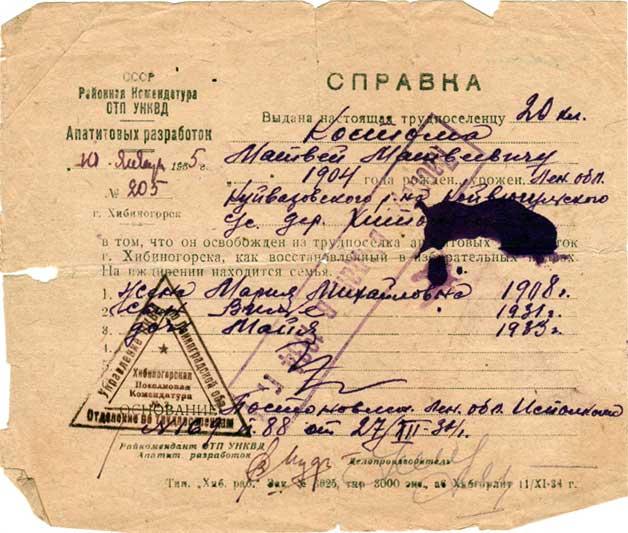 СССР
Районная Комендатура
ОТП УНКВД
Апатитовых разработок
10 Января 1935 г.
№ 205
г. Хибиногорск
СПРАВКА
Выдана настоящая трудпоселенцу 20 кл.
Матвей Матвеевичу
1904 года рожден., урожен. Лен. обл.
Куйвазовского р-на
с/с. дер.
в том, что он освобожден из трудпоселка апатитовых
г. Хибиногорска, как восстановленный в избирательных правах.
На иждивении находится семья.
1. Жена Мария Михайловна 1908 г.
2. сын 1931 г.
3. дочь Майя 1933 г.
4.
5.
ОСНОВАНИЕ: Постановлен. Лен. обл. Исполкома
№ 88 от 27/XII-34 г.
Управление
Ленинградской обл.
Отделение по трудпоселениям
Хибиногорская
Поселковая
Комендатура
Райкомендант ОТП УНКВД
Апатит. разработок
Делопроизводитель
Тип. „Хиб. раб.“ Зак. № 3025, тир 3000 экз., Хибгорлит 11/XI-34 г.